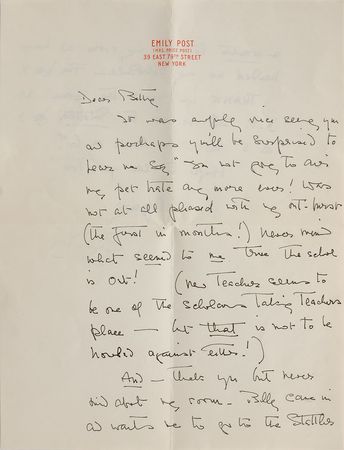 EMILY POST
(MRS. PRICE POST)
39 EAST 79TH STREET
NEW YORK
Dear Betty
It was awfully nice seeing you
and perhaps you'll be surprised to
hear me say "I'm not going to air
my pet hate any more ever! Was
not at all pleased with my out-burst
(the first in months!) Never mind
what seemed to me true the school
is out! (new Teacher seems to
be one of the scholars taking Teachers
place — but that is not to be
howled against either!)
And — thank you but never
mind about my room — Billy came in
and wants me to go to the Statler